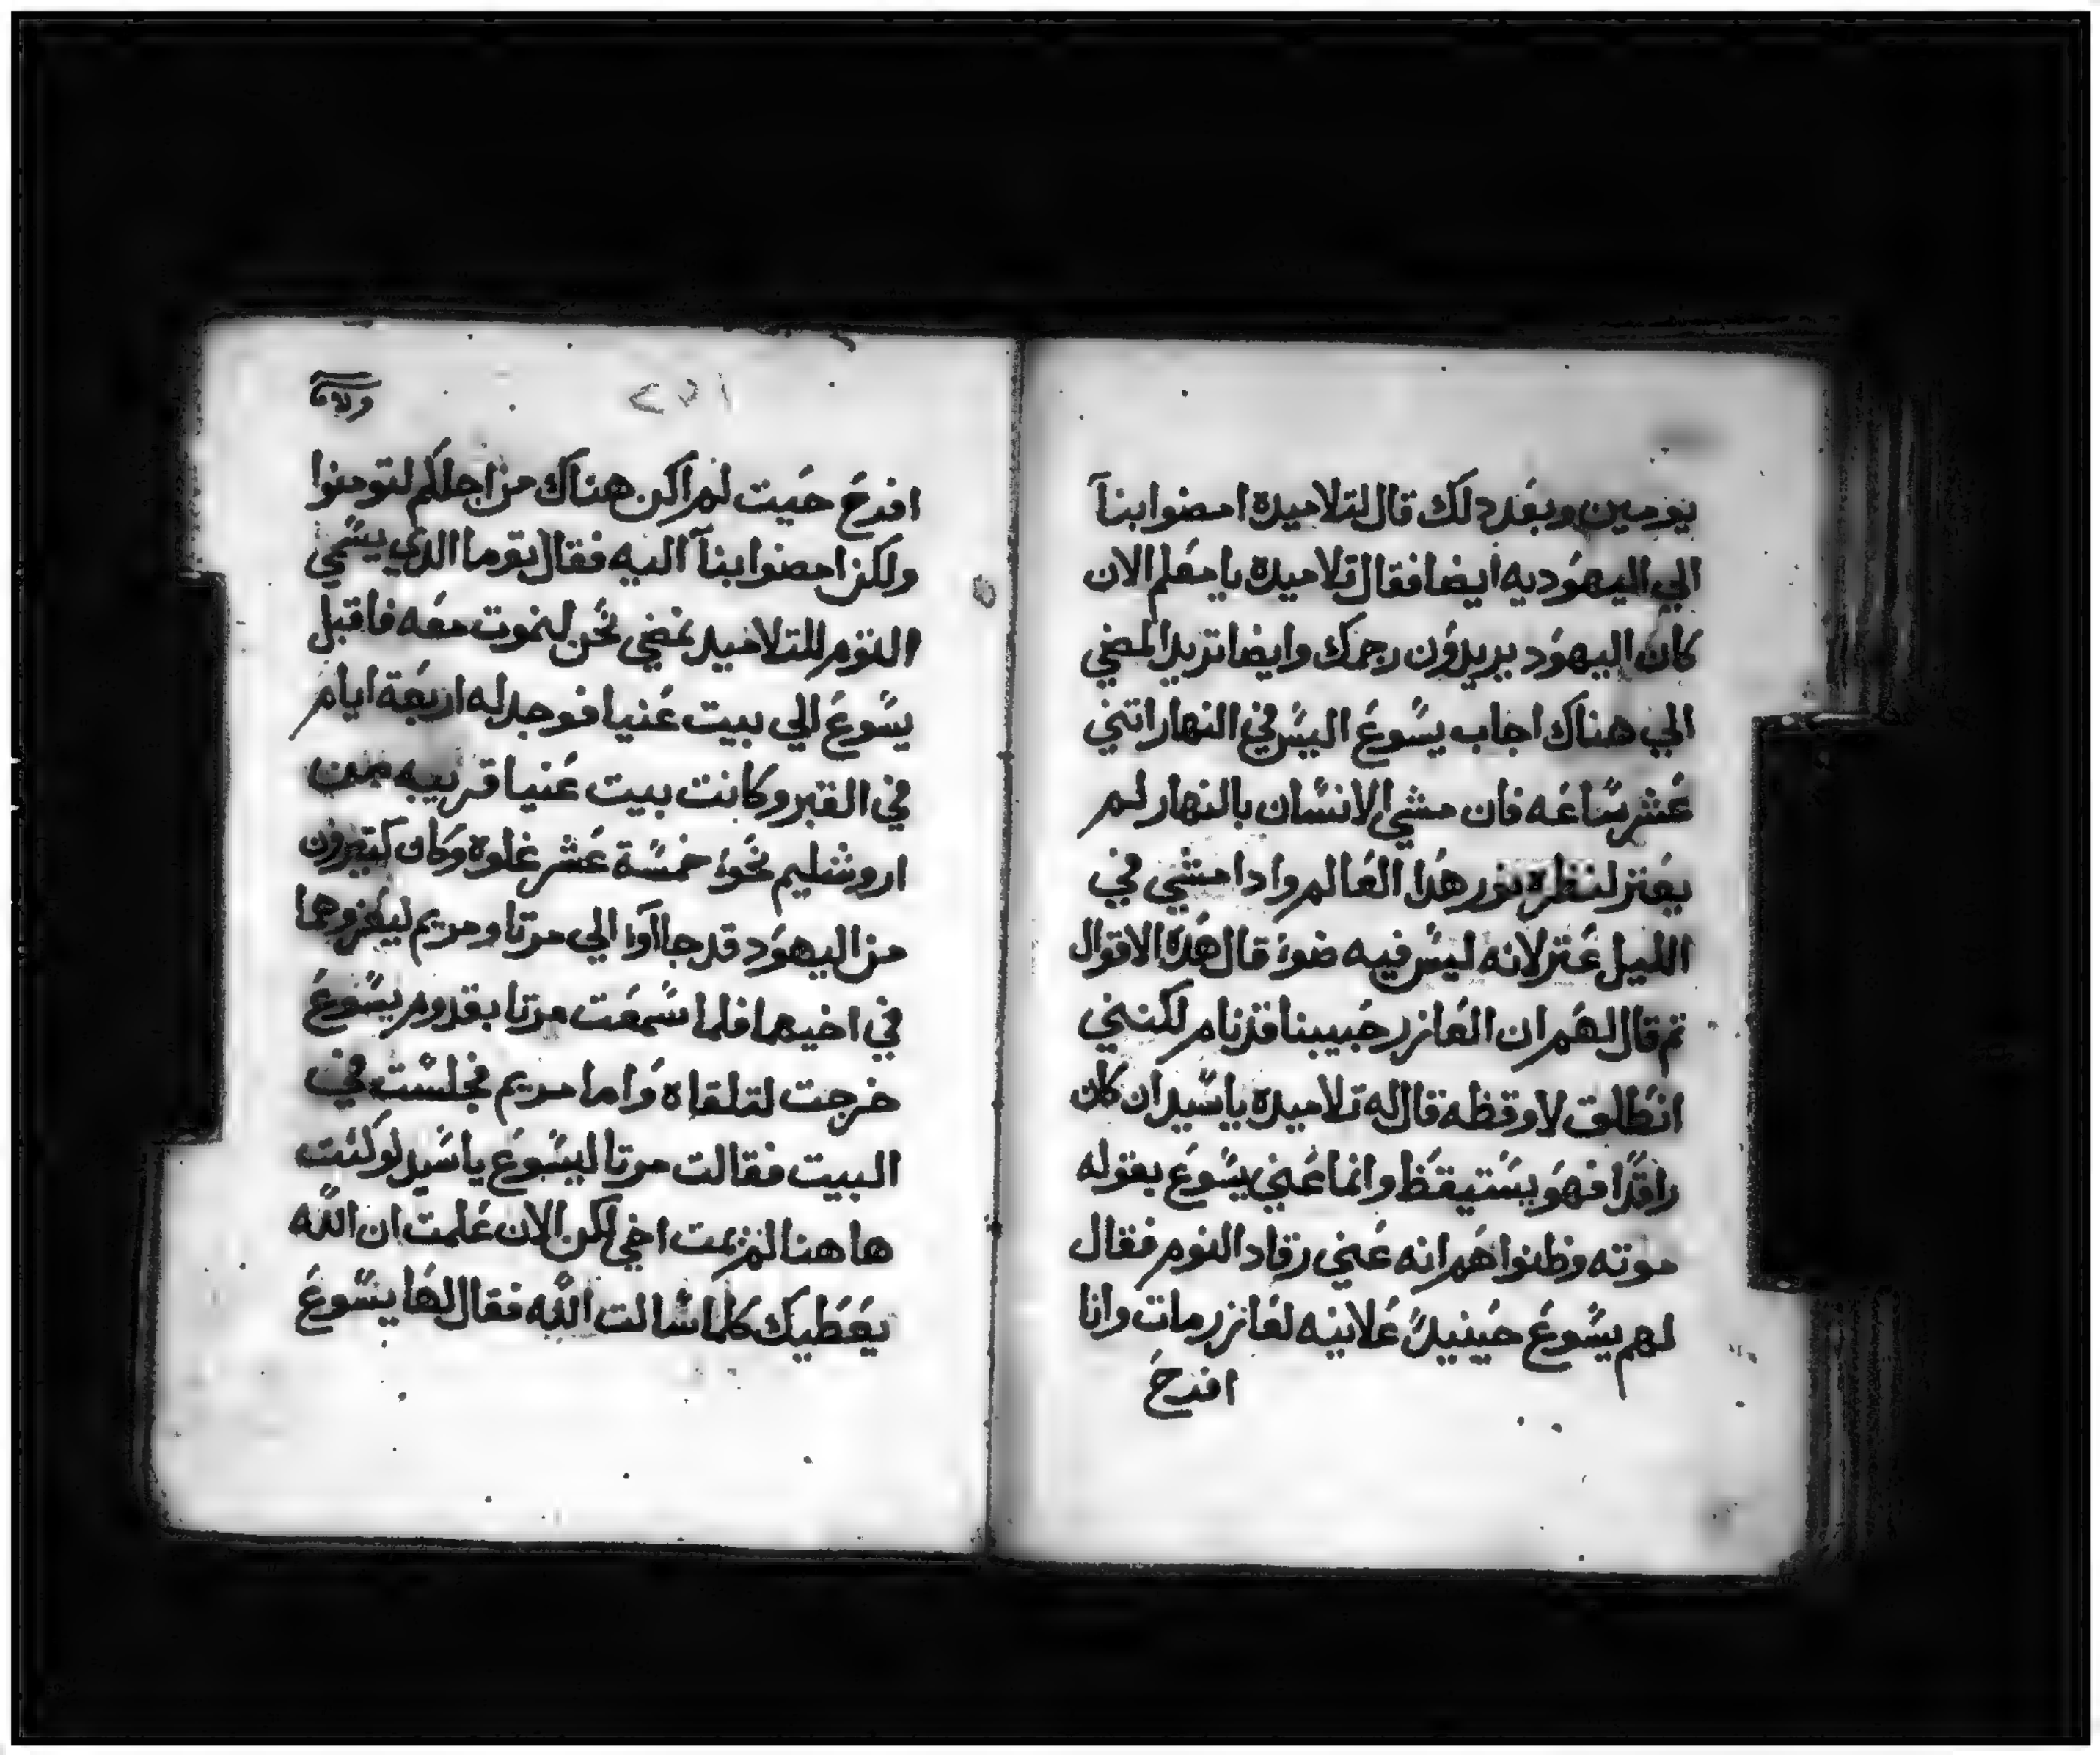 يومين وبعد دلك قال لتلاميده امضوا بنا
الي اليهوديه ايضا فقال تلاميده يا معلم الان
كان اليهود يريدون رجمك وايضا تريد المضي
الي هناك اجاب يسوع اليس في النهار اتني
عشر ساعه فان مشي الانسان بالنهار لم
يعتر لنظره نور هدا العالم وادا مشي في
الليل عتر لانه ليس فيه ضو قال هده الاقوال
تم قال لهم ان العازر حبيبنا قد نام لكنني
انطلق لاوقظه قال له تلاميده يا سيد ان كان
راقدا فهو يستيقظ وانما عني يسوع بقوله
موته وظنوا هم انه عني رقاد النوم فقال
لهم يسوع حينيد علانيه لعازر مات وانا
افرح
٢٥١
افرح حيت لم اكن هناك من اجلكم لتومنوا
ولكن امضوا بنا اليه فقال توما الدي يسمي
التوم للتلاميد نمضي نحن لنموت معه فاقبل
يسوع الي بيت عنيا فوجد له اربعة ايام
في القبر وكانت بيت عنيا قريبه من
اروشليم نحو خمسة عشر غلوه وكان كتيرون
من اليهود قد جااوا الي مرتا ومريم ليعزوهما
في اخيهما فلما سمعت مرتا بقدوم يسوع
خرجت لتلقاه واما مريم فجلست في
البيت فقالت مرتا ليسوع يا سيد لو كنت
هاهنا لم يمت اخي لكن الان علمت ان الله
يعطيك كلما سالت الله فقال لها يسوع